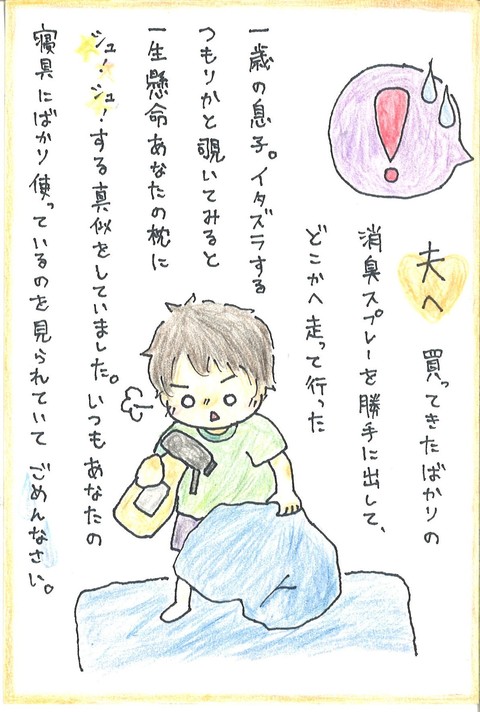 ！
夫へ 買ってきたばかりの
消臭スプレーを勝手に出して、
どこかへ走って行った
一歳の息子。イタズラする
つもりかと覗いてみると
一生懸命あなたの枕に
シュ！シュ！する真似をしていました。いつもあなたの
寝具にばかり使っているのを見られていて ごめんなさい。